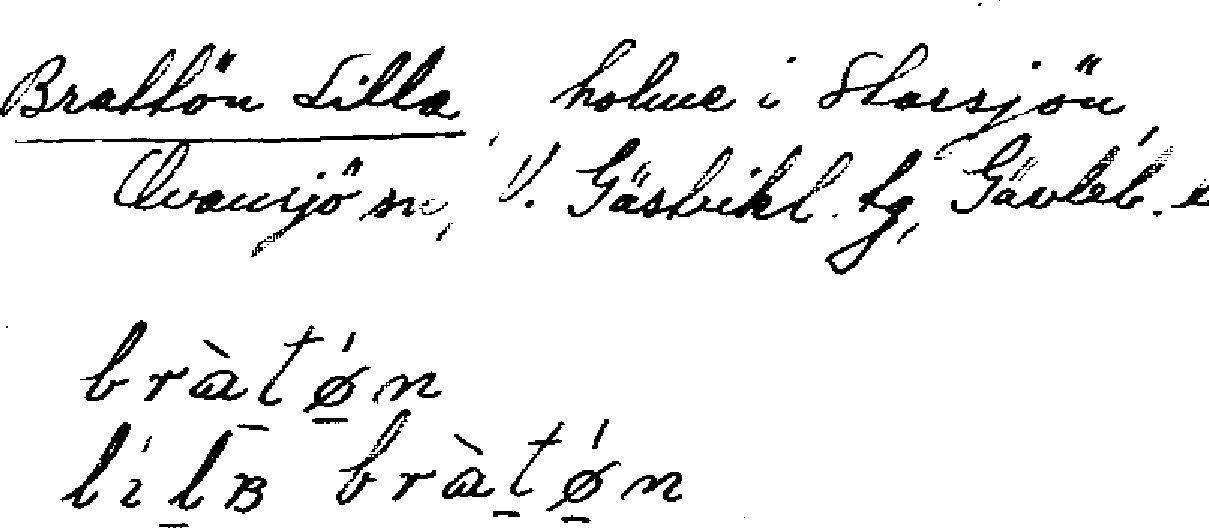 Brattön Lilla, holme i Storsjön,
Ovansjö sn, V. Gästrikl. tg, Gävleb. l
bràt̠ǿ̠n
líl̠ʙ bràt̠ǿ̠n